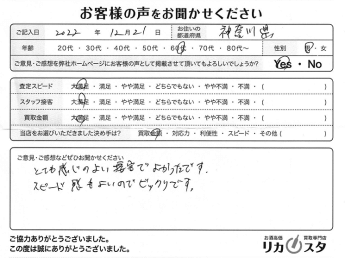 お客様の声をお聞かせください
ご記入日 2022年 12月 21日 お住いの都道府県 神奈川県
年齢 20代・30代・40代・50代・60代・70代・80代〜 性別 男・女
ご意見・ご感想を弊社ホームページにお客様の声として掲載させて頂いてもよろしいでしょうか? Yes・No
査定スピード 大満足・満足・やや満足・どちらでもない・やや不満・不満・( )
スタッフ接客 大満足・満足・やや満足・どちらでもない・やや不満・不満・( )
買取金額 大満足・満足・やや満足・どちらでもない・やや不満・不満・( )
当店をお選びいただきました決め手は? 買取金額・対応力・利便性・スピード・その他( )
ご意見・ご感想などぜひお聞かせください
とても感じのよい接客でよかったです。
スピード感もよいのでビックリです。
ご協力ありがとうございました。
この度は誠にありがとうございました。
お酒高価買取専門店
リカスタ